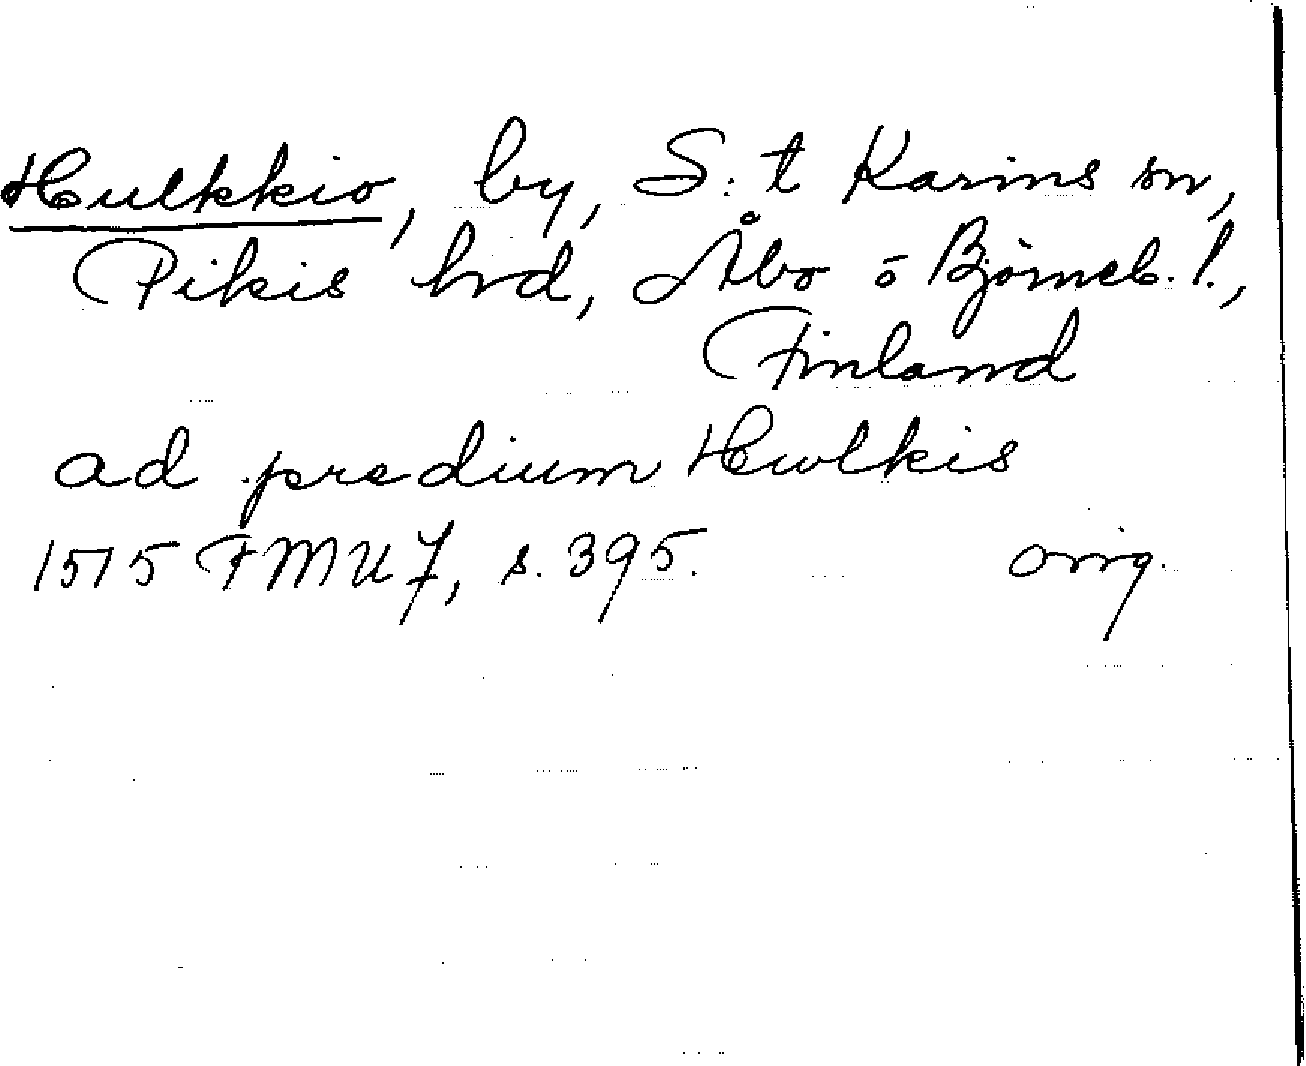 Hulkkio, by, S:t Karins sn,
Pikis hrd, Åbo o Björneb. l.,
Finland
ad predium Hwlkis
1515 FMU 7, s. 395. orig.